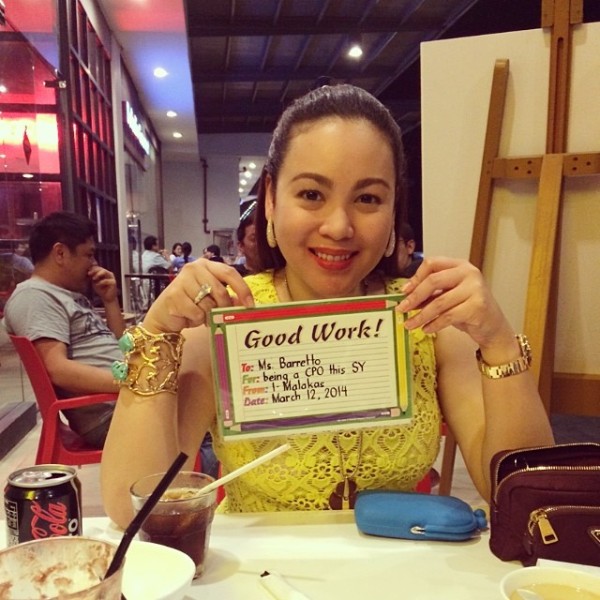 Good Work!
To: Ms. Barretto
For: being a CPO this SY
From: 1- Malakas
Date: March 12, 2014